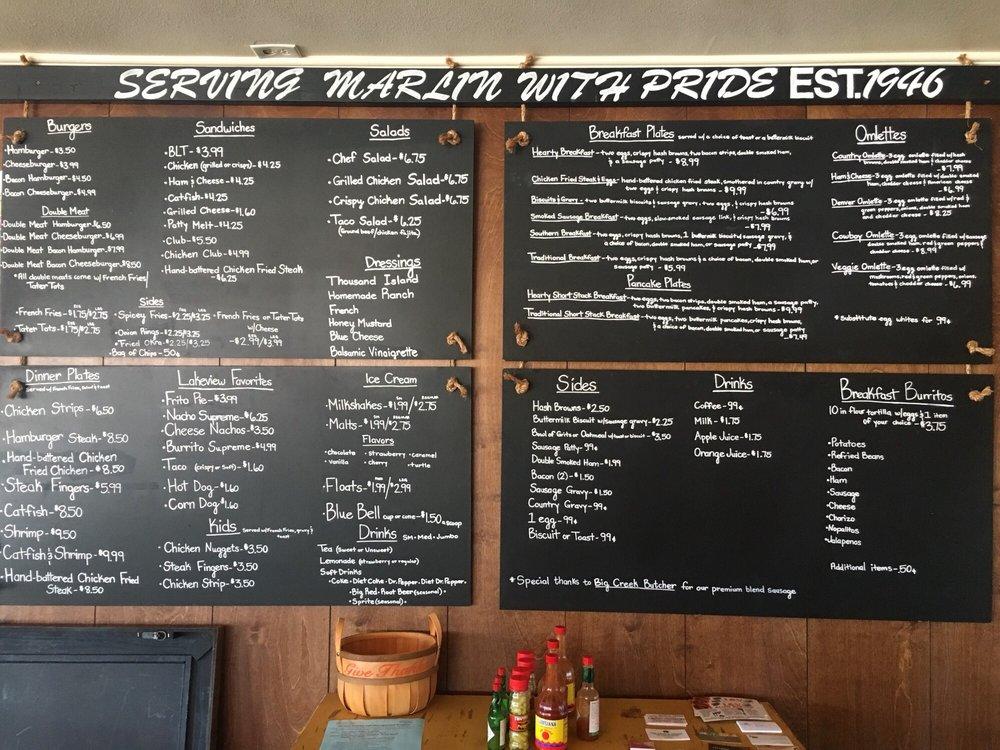 SERVING MARLIN WITH PRIDE EST. 1946
Burgers
•Hamburger-$3.50
•Cheeseburger-$3.99
•Bacon Hamburger-$4.50
•Bacon Cheeseburger-$4.99
Double Meat
•Double Meat Hamburger-$6.50
•Double Meat Cheeseburger-$6.99
•Double Meat Bacon Hamburger-$7.99
•Double Meat Bacon Cheeseburger-$8.50
*All double meats come w/ French Fries/
Tater Tots
Sandwiches
•BLT-$3.99
•Chicken (grilled or crispy)-$4.25
•Ham & Cheese-$4.25
•Catfish-$4.25
•Grilled Cheese-$1.60
•Patty Melt-$4.25
•Club-$5.50
•Chicken Club-$4.99
•Hand-battered Chicken Fried Steak
-$6.25
Sides
•French Fries-$1.75/$2.75
•Tater Tots-$1.75/$2.75
•Spicey Fries-$2.25/$3.25
•Onion Rings-$2.25/$3.25
•Fried Okra-$2.25/$3.25
•Bag of Chips-50¢
•French Fries or Tater Tots
w/Cheese
-$2.99/$3.99
Salads
•Chef Salad-$6.75
•Grilled Chicken Salad-$6.75
•Crispy Chicken Salad-$6.75
•Taco Salad-$6.25
(Ground beef/chicken fajita)
Dressings
Thousand Island
Homemade Ranch
French
Honey Mustard
Blue Cheese
Balsamic Vinaigrette
Breakfast Plates served w/ a choice of toast or a buttermilk biscuit
Hearty Breakfast-two eggs, crispy hash browns, two bacon strips, double smoked ham,
& a sausage patty -$8.99
Chicken Fried Steak & Eggs- hand-battered chicken fried steak, smothered in country gravy w/
two eggs & crispy hash browns -$9.99
Biscuits & Gravy- two buttermilk biscuits w/ sausage gravy, two eggs, & crispy hash browns
-$6.99
Smoked Sausage Breakfast-two eggs, slow smoked sausage link, & crispy hash browns
-$7.99
Southern Breakfast-two eggs, crispy hash browns, 1 buttermilk biscuit w/ sausage gravy, &
a choice of bacon, double smoked ham, or sausage patty -$7.99
Traditional Breakfast-two eggs, crispy hash browns & a choice of bacon, double smoked ham, or
sausage patty -$5.99
Pancake Plates
Hearty Short Stack Breakfast-two eggs, two bacon strips, double smoked ham, a sausage patty,
two buttermilk pancakes, & crispy hash browns -$9.99
Traditional Short Stack Breakfast-two eggs, two buttermilk pancakes, crispy hash browns
& a choice of bacon, double smoked ham, or sausage patty
-$7.49
Omlettes
Country Omlette-3 egg omlette filled w/ hash
-$7.99
Ham & Cheese-3 egg omlette filled w/ double smoked
ham, cheddar cheese & American cheese
-$6.99
Denver Omlette-3 egg omlette filled w/ red &
green peppers, onions, double smoked ham
and cheddar cheese -$8.25
Cowboy Omlette-3 egg omlette filled w/ sausage
double smoked ham, red & green peppers &
cheddar cheese -$8.99
Veggie Omlette-3 egg omlette filled w/
mushrooms, red & green peppers, onions,
tomatoes & cheddar cheese -$6.99
*Substitute egg whites for 99¢
Dinner Plates
served w/ French Fries, Salad & toast
•Chicken Strips-$6.50
•Hamburger Steak-$8.50
•Hand-battered Chicken
Fried Chicken-$8.50
•Steak Fingers-$5.99
•Catfish-$8.50
•Shrimp-$9.50
•Catfish & Shrimp-$9.99
•Hand-battered Chicken Fried
Steak-$8.50
Lakeview Favorites
•Frito Pie-$3.99
•Nacho Supreme-$6.25
•Cheese Nachos-$3.50
•Burrito Supreme-$4.99
•Taco (crispy or soft)-$1.60
•Hot Dog-$1.60
•Corn Dog-$1.60
Kids Served w/ French Fries, gravy &
toast
•Chicken Nuggets-$3.50
•Steak Fingers-$3.50
•Chicken Strip-$3.50
Ice Cream
•Milkshakes-$1.99/$2.75
•Malts-$1.99/$2.75
Flavors
•chocolate •strawberry •caramel
•vanilla •cherry •turtle
•Floats-$1.99/$2.99
•Blue Bell cup or cone-$1.50 a scoop
Drinks SM•Med•Jumbo
Tea (sweet or Unsweet)
Lemonade (strawberry or regular)
Soft Drinks
•Coke•Diet Coke•Dr. Pepper•Diet Dr. Pepper•
•Big Red•Root Beer (seasonal)•
•Sprite (seasonal)•
Sides
Hash Browns-$2.50
Buttermilk Biscuit w/ sausage gravy-$2.25
Bowl of Grits or Oatmeal w/ toast or biscuit-$3.50
Sausage Patty-99¢
Double Smoked Ham-$1.99
Bacon (2)-$1.50
Sausage Gravy-$1.50
Country Gravy-99¢
1 egg-99¢
Biscuit or Toast-99¢
Drinks
Coffee-99¢
Milk-$1.75
Apple Juice-$1.75
Orange Juice-$1.75
Breakfast Burritos
10 in flour tortilla w/ eggs & 1 item
of your choice-$3.75
•Potatoes
•Refried Beans
•Bacon
•Ham
•Sausage
•Cheese
•Chorizo
•Nopalitos
•Jalapenos
Additional items-.50¢
*Special thanks to Big Creek Butcher for our premium blend sausage
Give Thanks